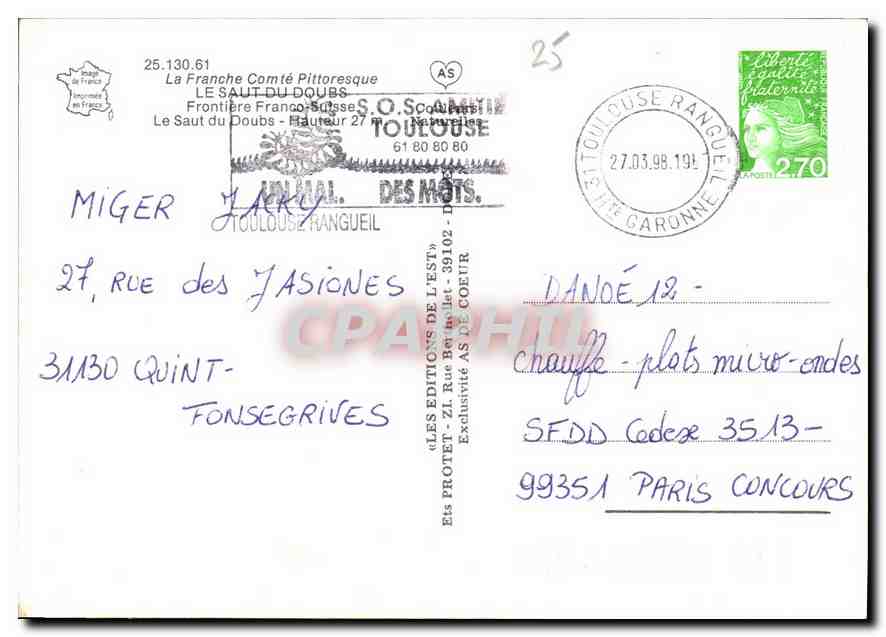 25
Image
de France
Imprimée
en France
25.130.61
La Franche Comté Pittoresque
LE SAUT DU DOUBS
Frontière Franco-Suisse
Le Saut du Doubs - Hauteur 27 m
AS
Couleurs
Naturelles
S.O.S. AMITIE
TOULOUSE
61 80 80 80
UN MAL. DES MOTS.
TOULOUSE RANGUEIL
31 TOULOUSE RANGUEIL
27.03.98.19
Hte GARONNE
liberté
égalité
fraternité
REPUBLIQUE FRANÇAISE
LA POSTE 2,70
MIGER JACKY
27, RUE des JASIONES
31130 QUINT-
FONSEGRIVES
«LES EDITIONS DE L'EST»
Ets PROTET - ZI. Rue Berthollet - 39102 -
Exclusivité AS DE COEUR
DANOÉ 12 -
chauffe-plats micro-ondes
SFDD Cedex 3513-
99351 PARIS CONCOURS
CPAPHIL